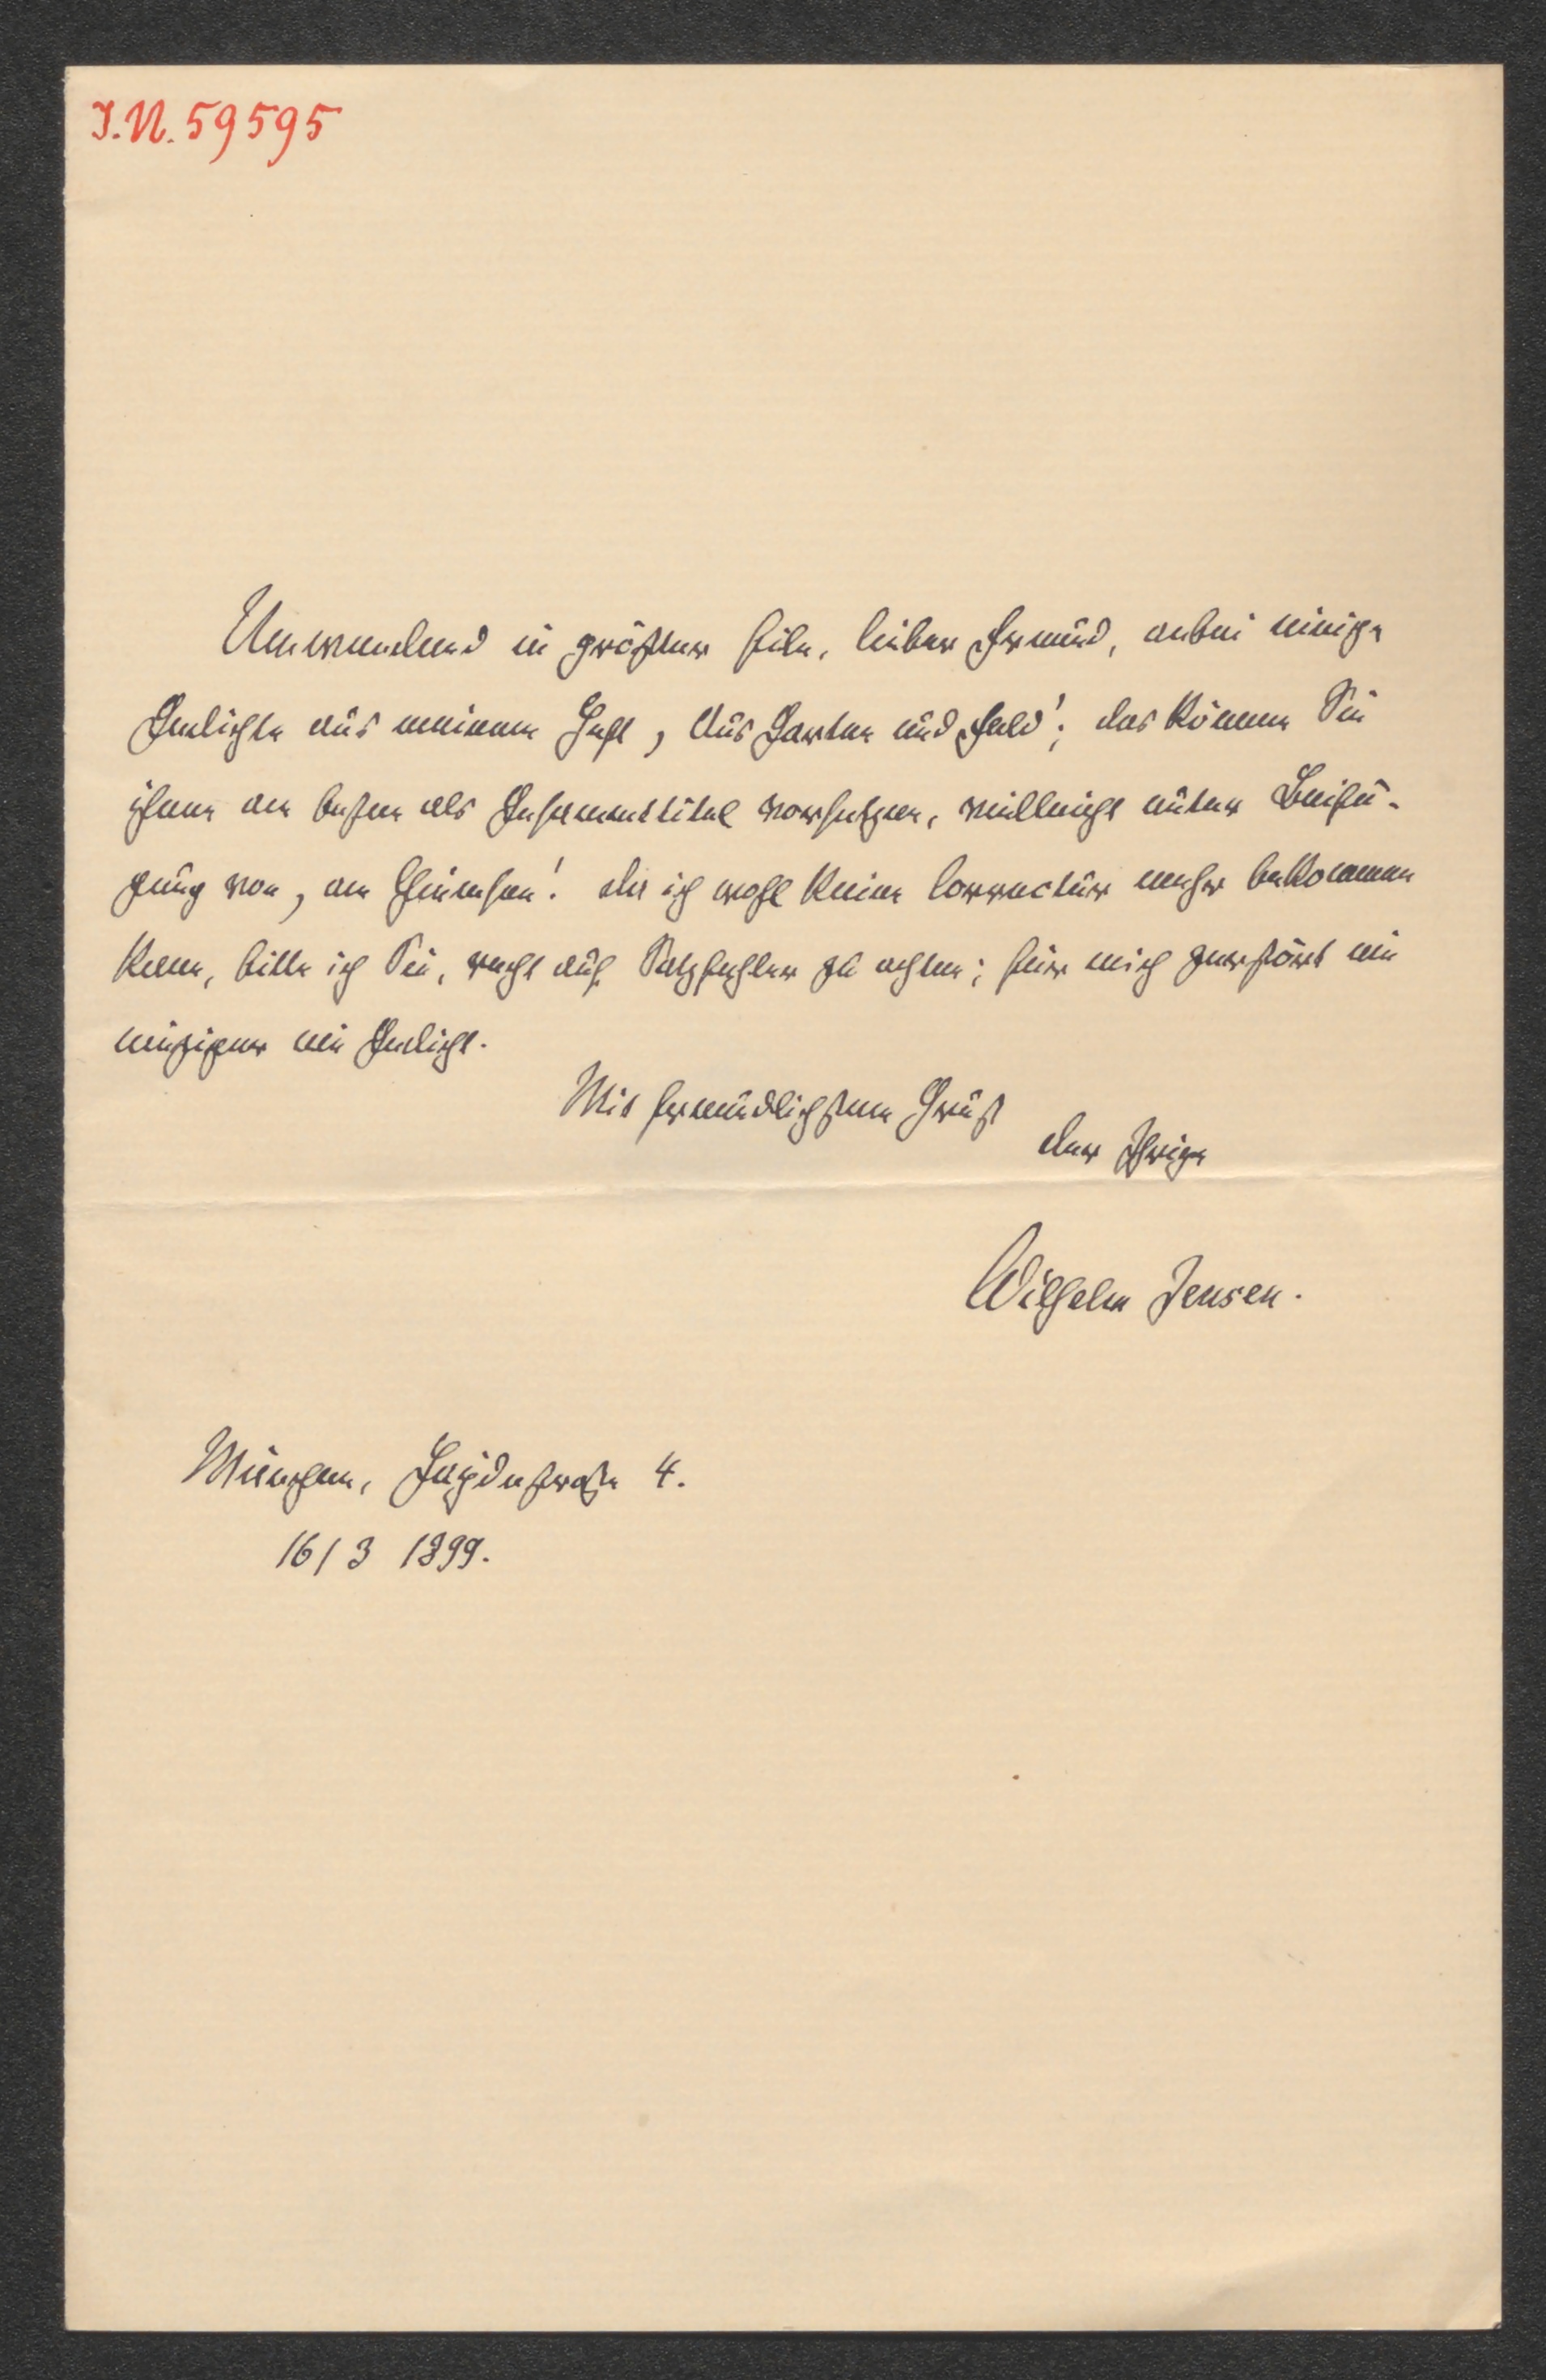 I.N. 59595
Umwendend in größter Eile, lieber Freund, anbei einige
Gedichte aus meinem Heft, ‚Aus Garten und Feld‘; das können Sie
ihnen am besten als Gesammttitel vorsetzen, vielleicht unter Beifü-
gung von ‚am Chiemsee‘. Da ich wohl keine Correctur mehr bekommen
kann, bitte ich Sie, recht auf Satzfehler zu achten; für mich zerstört ein
einziger ein Gedicht.
Mit freundlichstem Gruß
der Ihrige
Wilhelm Jensen.
München, Straße 4.
16/3 1899.